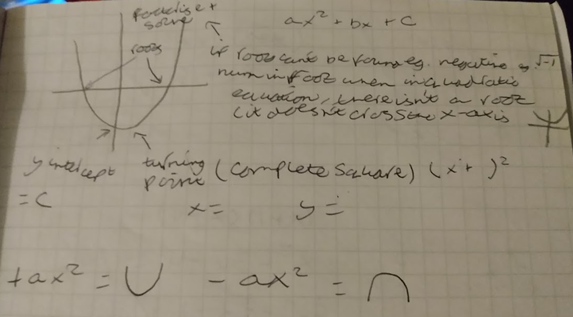 factorise +
solve
ax² + bx + c
roots
if roots can't be found eg. negative
√-1
num in root when in quadratic
equation, there isn't a root
(it doesn't cross the x-axis
y intercept
= c
turning
point (complete square) (x+ )²
x= y=
+ax² = ∪ -ax² = ∩